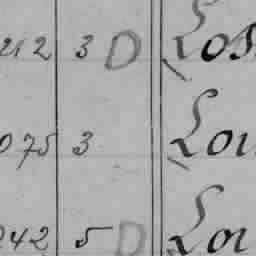 212 3 D Los
075 3 Lou
242 5 D Lou